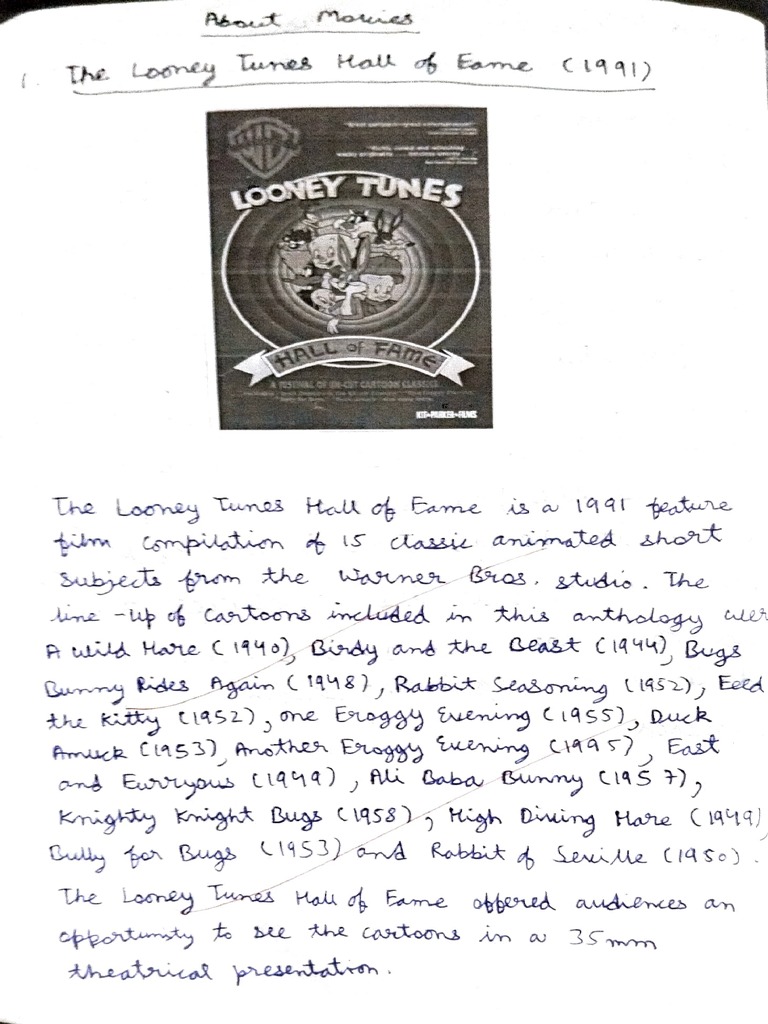 About Movies
1. The Looney Tunes Hall of Fame (1991)
LOONEY TUNES
HALL OF FAME
A FESTIVAL OF UN-CUT CARTOON CLASSICS
KIT PARKER FILMS
The Looney Tunes Hall of Fame is a 1991 feature
film compilation of 15 classic animated short
subjects from the Warner Bros. studio. The
line-up of cartoons included in this anthology were
A Wild Hare (1940), Birdy and the Beast (1944), Bugs
Bunny Rides Again (1948), Rabbit Seasoning (1952), Feed
the Kitty (1952), one Froggy Evening (1955), Duck
Amuck (1953), Another Froggy Evening (1995), Fast
and Furryous (1949), Ali Baba Bunny (1957),
Knighty Knight Bugs (1958), High Diving Hare (1949)
Bully for Bugs (1953) and Rabbit of Seville (1950).
The Looney Tunes Hall of Fame offered audiences an
opportunity to see the cartoons in a 35mm
theatrical presentation.